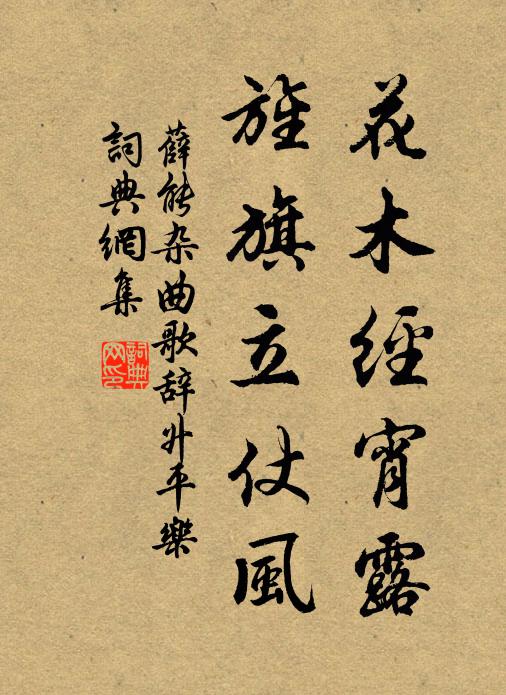 花木經宵露
旌旗立仗風
薛能杂曲歌辞升平樂
詞典網集
詞典
网印